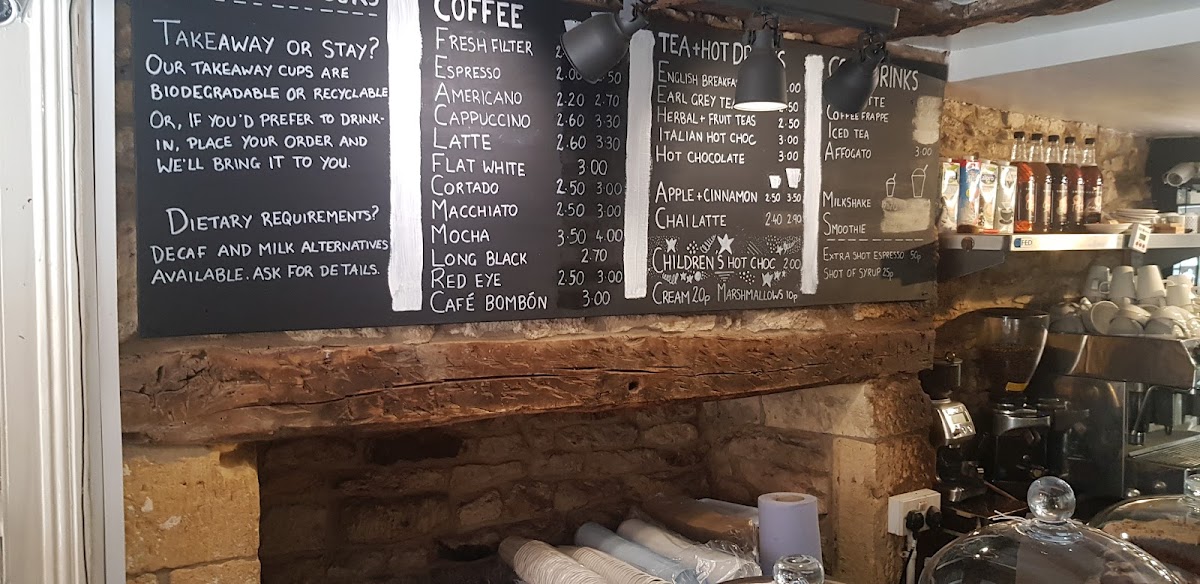 TAKEAWAY OR STAY?
OUR TAKEAWAY CUPS ARE
BIODEGRADABLE OR RECYCLABLE
OR, IF YOU'D PREFER TO DRINK-
IN, PLACE YOUR ORDER AND
WE'LL BRING IT TO YOU.
DIETARY REQUIREMENTS?
DECAF AND MILK ALTERNATIVES
AVAILABLE. ASK FOR DETAILS.
COFFEE
FRESH FILTER
ESPRESSO 2.00
AMERICANO 2.20 2.70
CAPPUCCINO 2.60 3.30
LATTE 2.60 3.30
FLAT WHITE 3.00
CORTADO 2.50 3.00
MACCHIATO 2.50 3.00
MOCHA 3.50 4.00
LONG BLACK 2.70
RED EYE 2.50 3.00
CAFÉ BOMBÓN 3.00
TEA + HOT
ENGLISH
EARL GREY TEA
HERBAL + FRUIT TEAS 2.50
ITALIAN HOT CHOC 3.00
HOT CHOCOLATE 3.00
APPLE + CINNAMON 2.50 3.50
CHAI LATTE 2.40 2.90
CHILDREN'S HOT CHOC 2.00
CREAM 20p MARSHMALLOWS 10p
COFFEE FRAPPE
ICED TEA
AFFOGATO 3.00
MILKSHAKE
SMOOTHIE
EXTRA SHOT ESPRESSO 50p
SHOT OF SYRUP 25p
FED